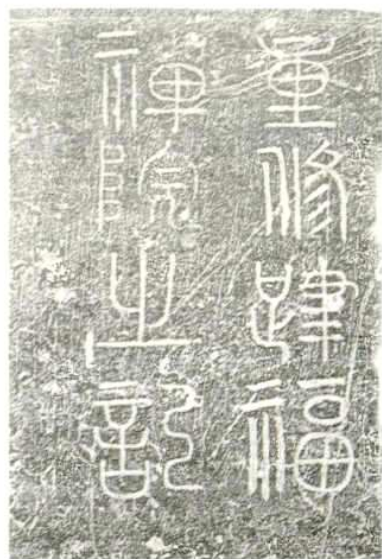 重修建福
禪院之記